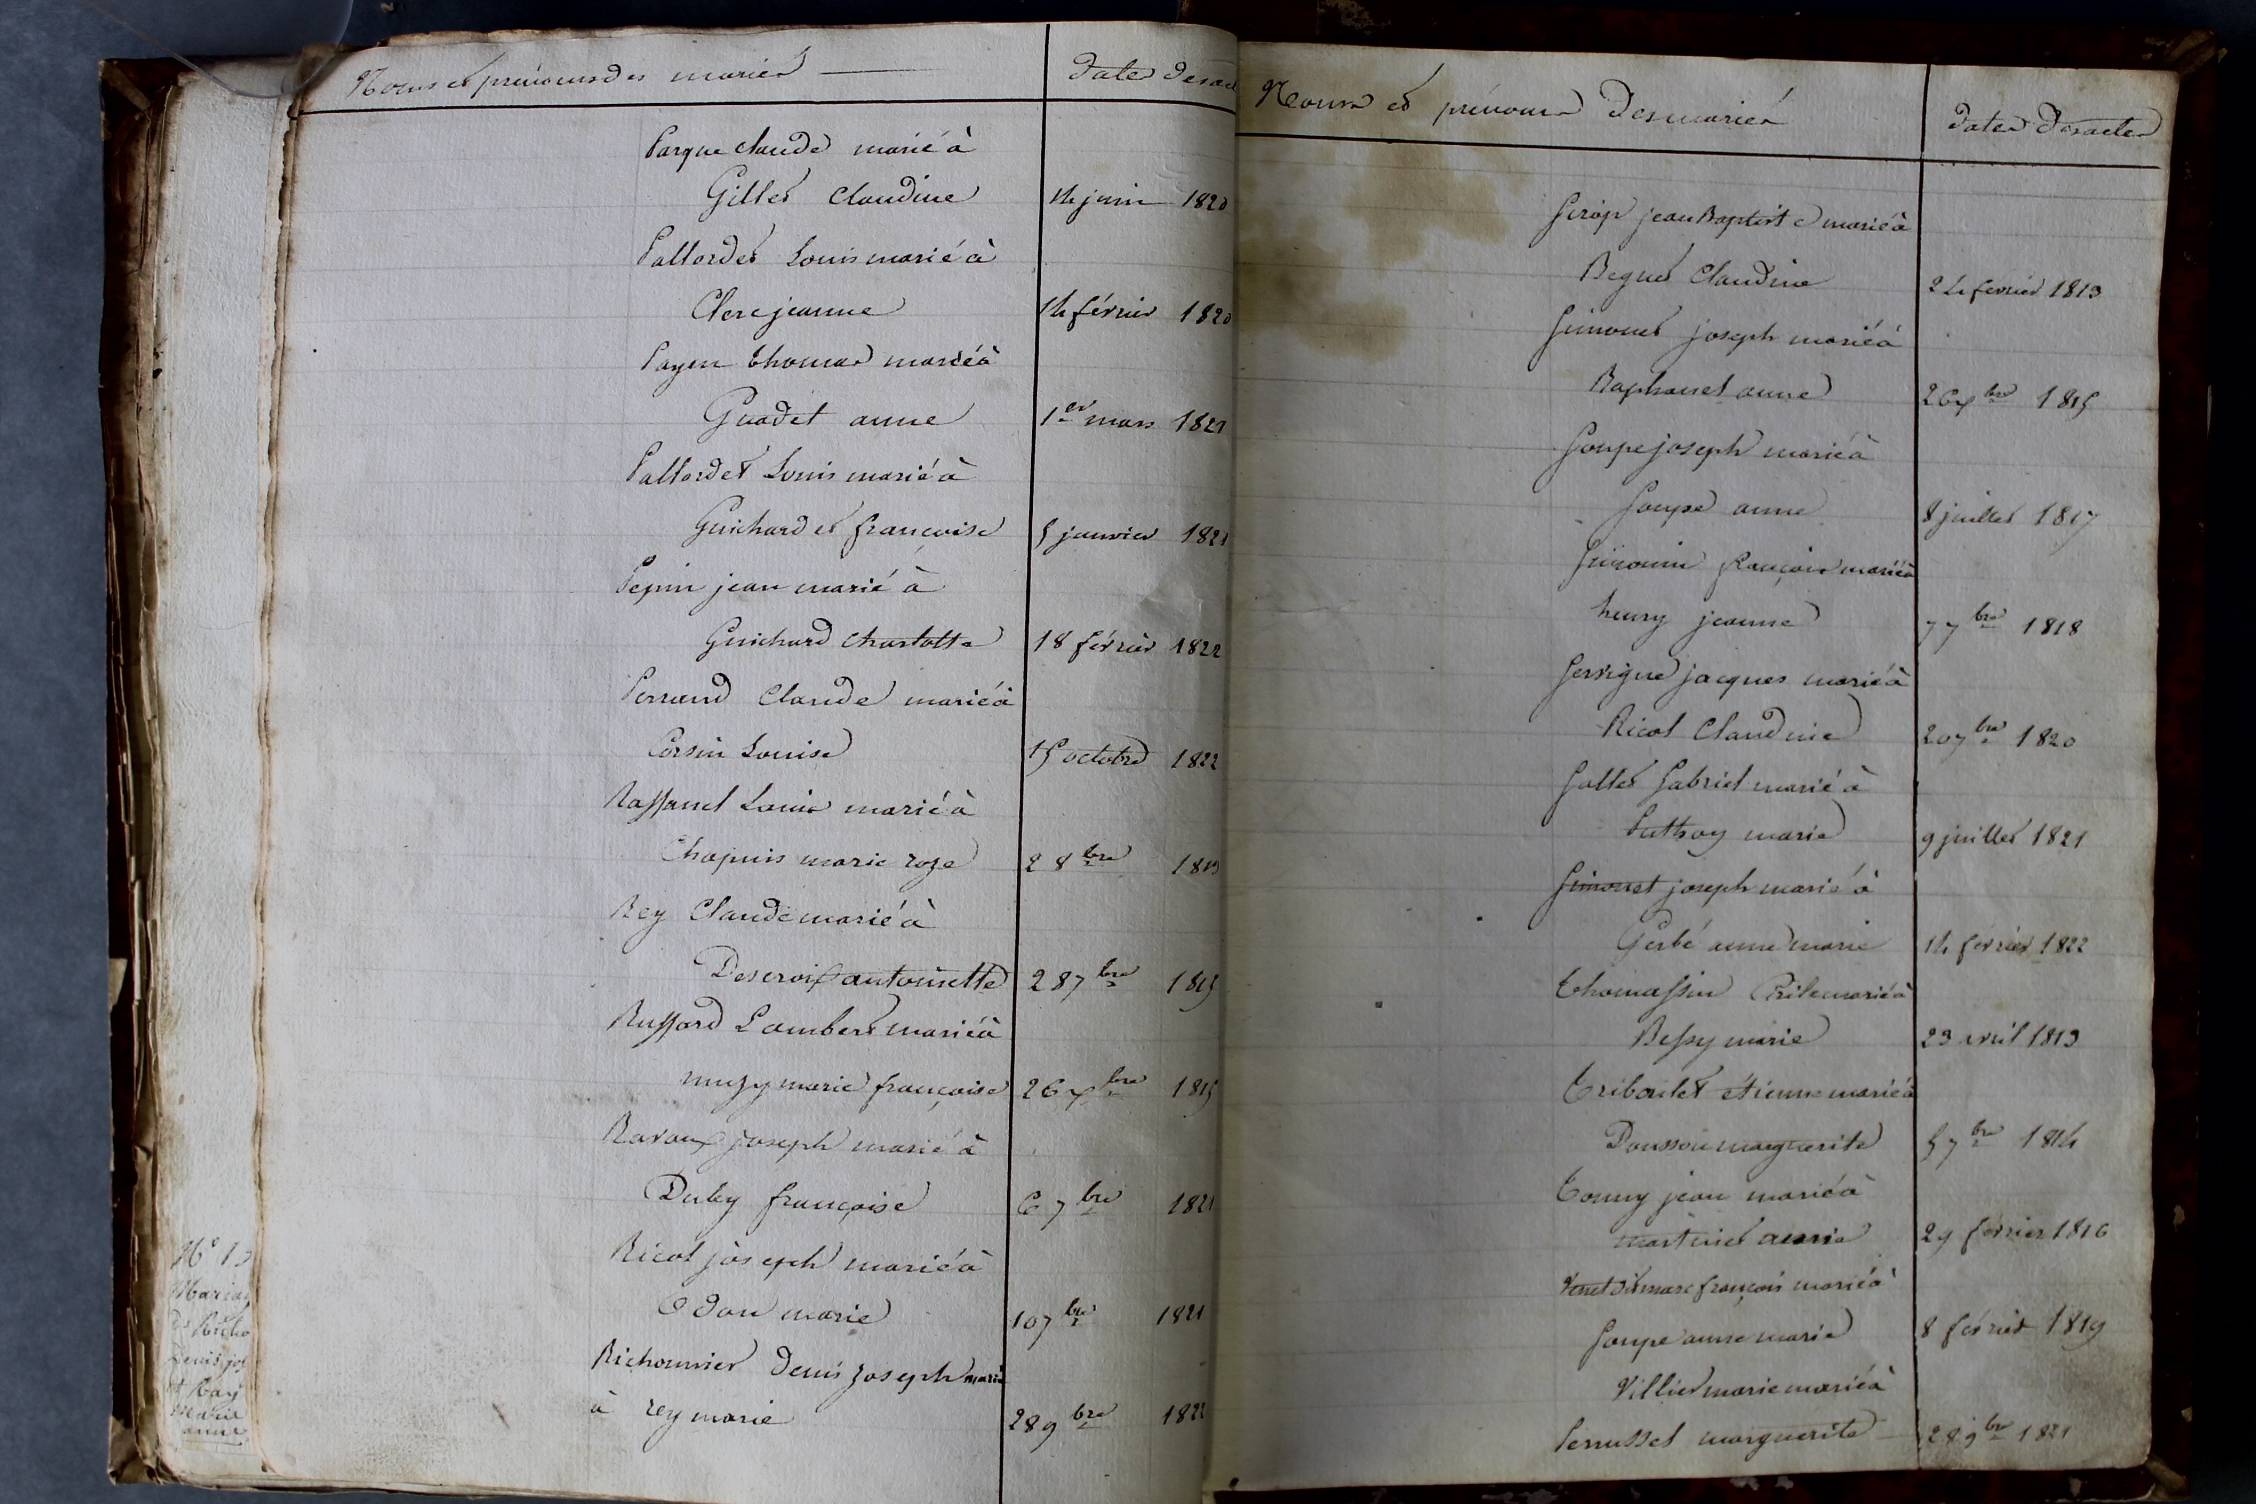 Noms et prénoms des mariés
Dates des act
Parque Claude marié à
Gillet Claudine 14 juin 1820
Pallordet Louis marié à
Clerc jeanne 14 février 1820
Payen thomas marié à
Guadet anne 1er mars 1821
Pallordet Louis marié à
Guichardet françoise 5 janvier 1821
Pepin jean marié à
Guichard Charlotte 18 février 1822
Perraud Claude marié à
Corsin Louise 15 octobre 1822
Raffanel Louis marié à
Chapuis marie roze 2 8bre 1813
Rey Claude marié à
Descroix antoinette 28 7bre 1815
Ruffard Lambert marié à
muzy marie françoise 26 xbre 1815
Ravaux joseph marié à
Duby françoise 6 7bre 1821
Ricol joseph marié à
Odou marie 10 7bre 1821
Richonnier Denis joseph marié
à rey marie 28 9bre 1822
Mariag
Denis jos
et Rey
Marie
anne
Noms et prénoms des mariés
Dates des actes
jean Baptiste marié à
Beguet Claudine 24 février 1813
Simonet joseph marié à
Raphanel anne 26 xbre 1815
Soupe joseph marié à
Soupe anne 8 juillet 1817
Simonin françois marié à
henry jeanne 7 7bre 1818
Servigne jacques marié à
Ricol Claudine 20 7bre 1820
Sallet Gabriel marié à
Puthoy marie 9 juillet 1821
Simonet joseph marié à
Gerbé anne marie 14 février 1822
Thomassin marié à
Bessy marie 23 avril 1813
Triboulet étienne marié à
Dousson marguerite 5 7bre 1814
Tonny jean marié à
martinet marie 29 février 1816
Venet dit marc françois marié à
Soupe anne marie 8 février 1819
Villier marie marié à
Perrusset marguerite 28 9bre 1821